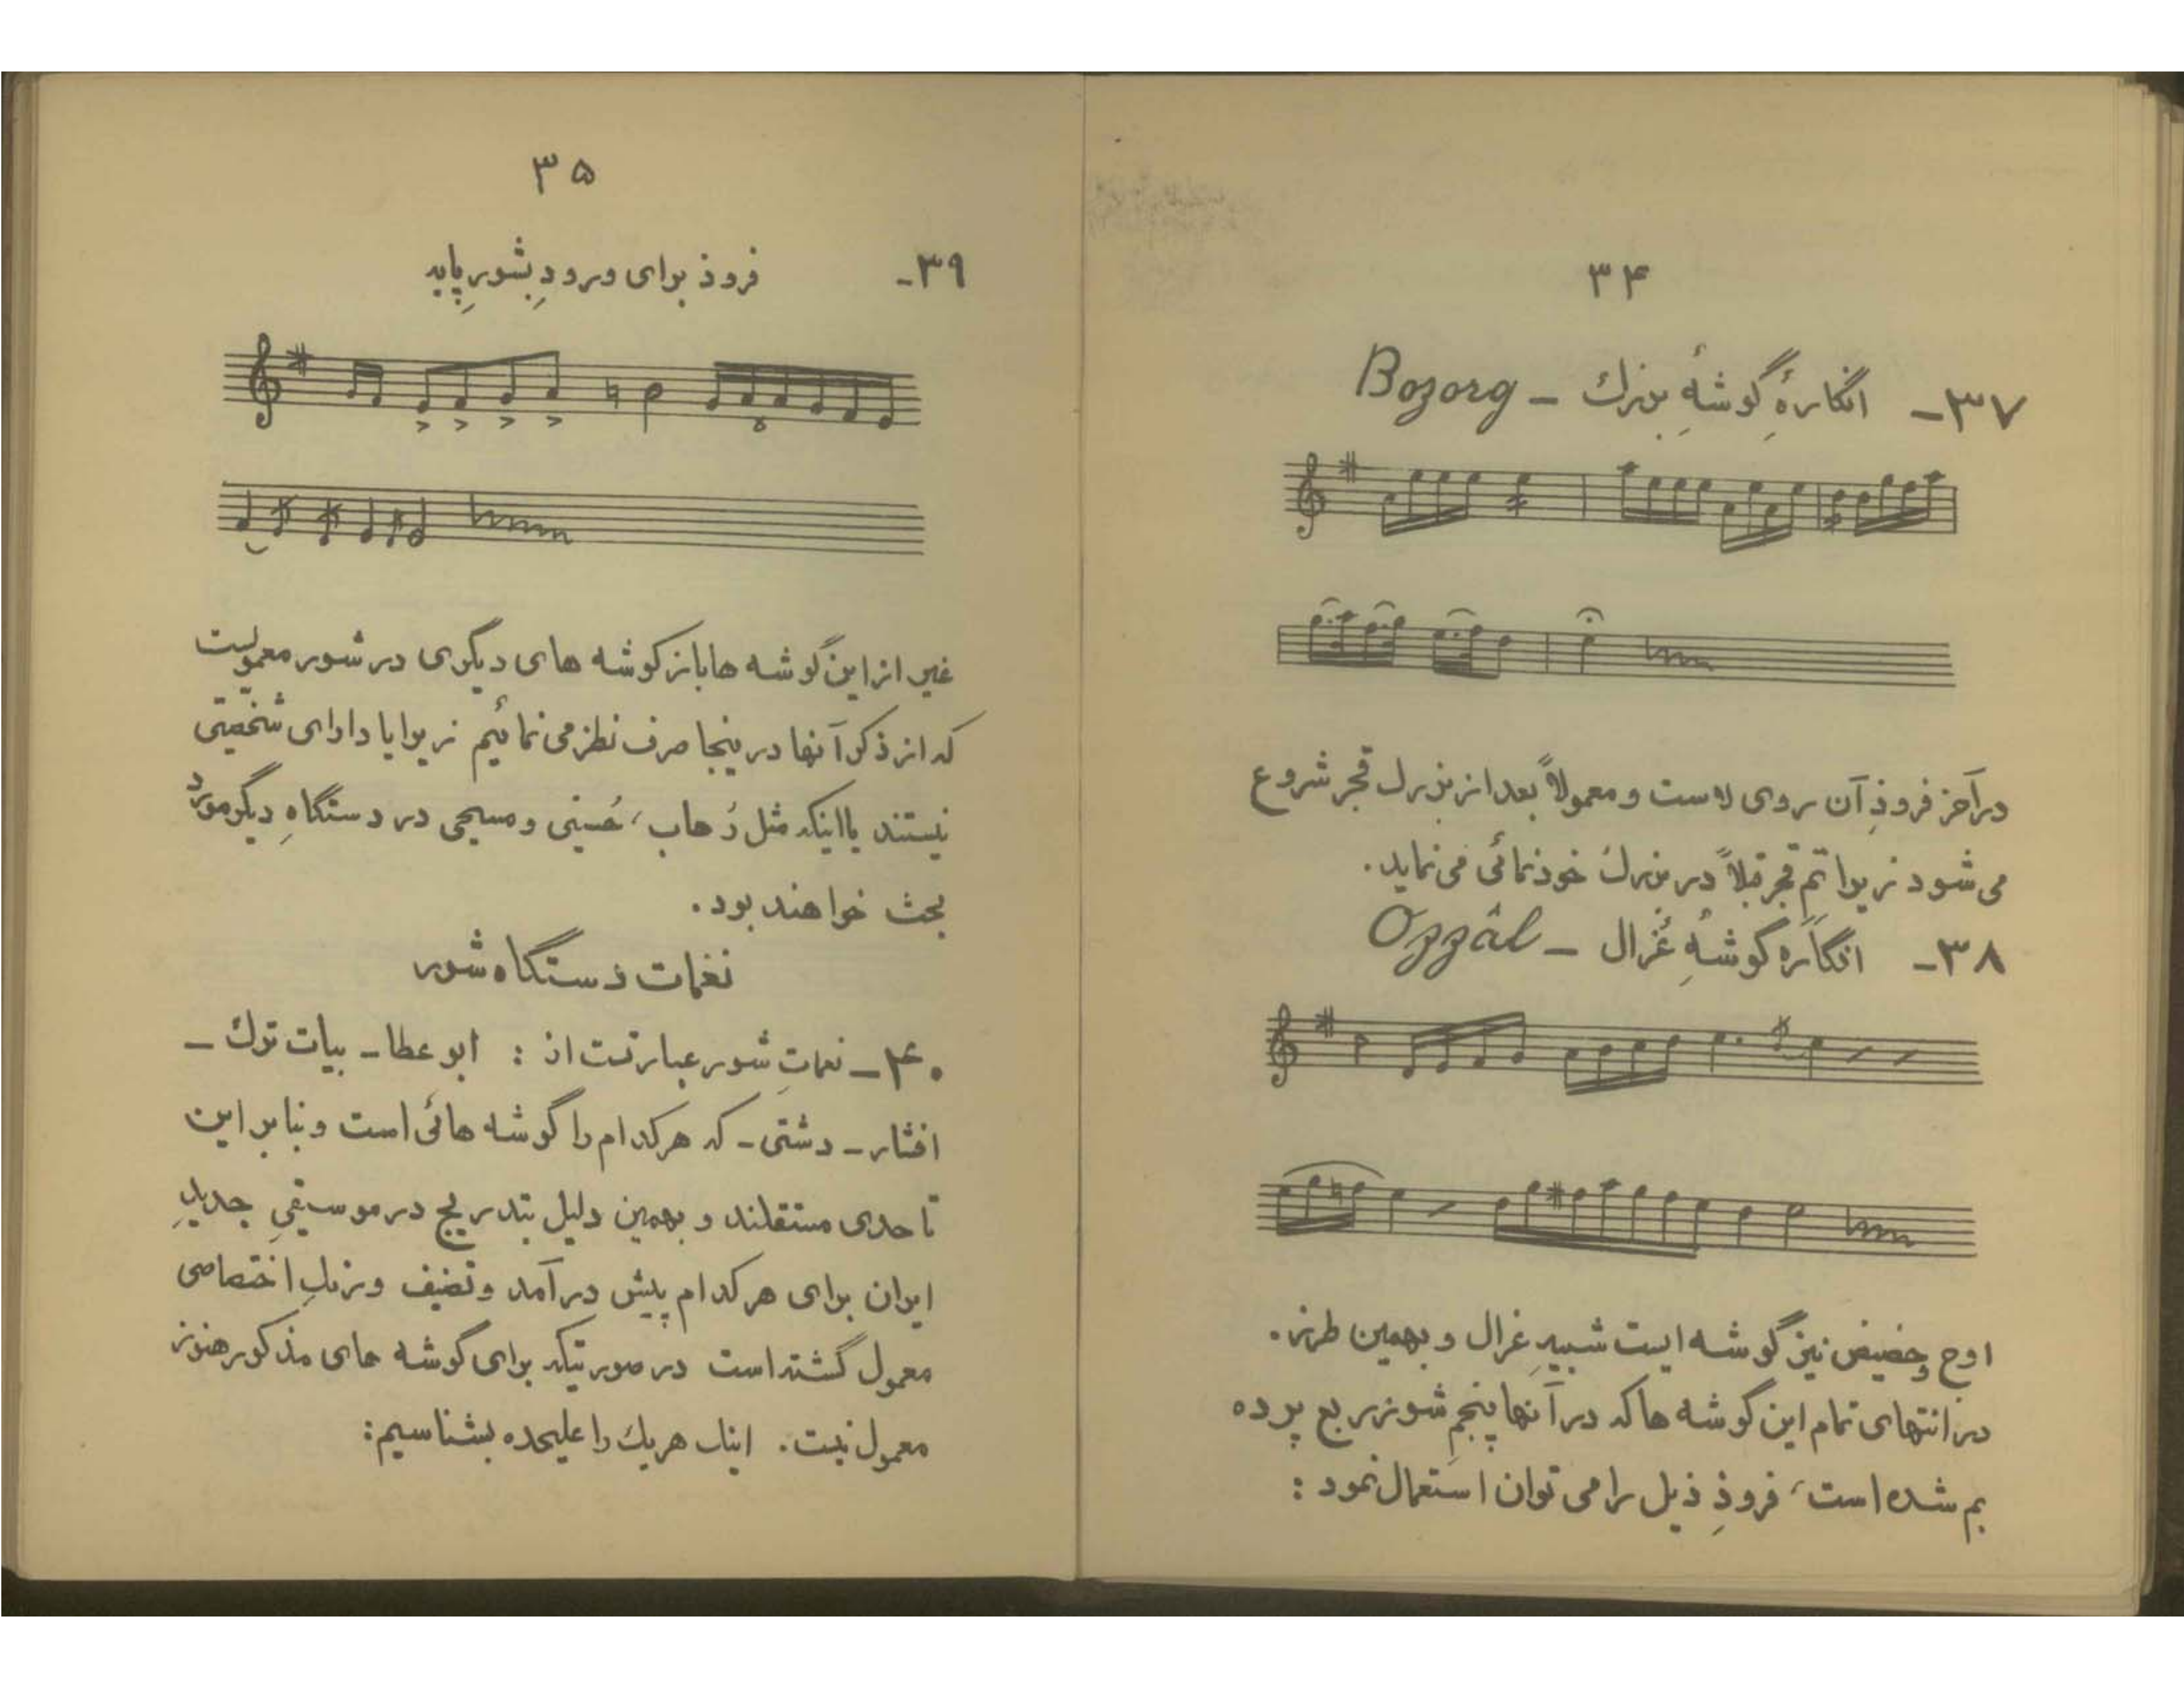 ۳۴
۳۷- انگارهٔ گوشهِ بزرك - Bozorg
در آخر فروذِ آن روی لاست و معمولاً بعد از بزرك قجر شروع
می شود زیرا تمِ قجر قبلاً در بزرك خودنمائی می نماید.
۳۸- انگارَه گوشهِ عُزال - Ozzâl
اوج و حضیض نیز گوشه ایست شبیهِ عزال و بهمین طرز.
در انتهای تمام این گوشه ها که در آنها پنجمِ شور ربع پرده
بم شده است، فروذِ ذیل را می توان استعمال نمود :
۳۵
۳۹- فروذ برای ورودِ بشورِ پایه
غیر از این گوشه ها باز گوشه های دیگری در شور معمولست
که از ذکر آنها در ینجا صرف نظر می نمائیم زیرا یا دارای شخصیّتی
نیستند یا اینکه مثل رُهاب، حُسینی و مسیحی در دستگاهِ دیگر مورد
بحث خواهند بود.
نغمات دستگاه شور
۴۰- نغماتِ شور عبارتست از : ابوعطا - بیات ترك -
افشار - دشتی - که هر کدام را گوشه هائی است و بنابر این
تا حدی مستقلند و بهمین دلیل بتدریج در موسیقیِ جدیدِ
ایران برای هر کدام پیش درآمد و تصنیف و رنگِ اختصاصی
معمول گشته است در صورتیکه برای گوشه های مذکور هنوز
معمول نیست. اینك هر یك را علیحده بشناسیم: